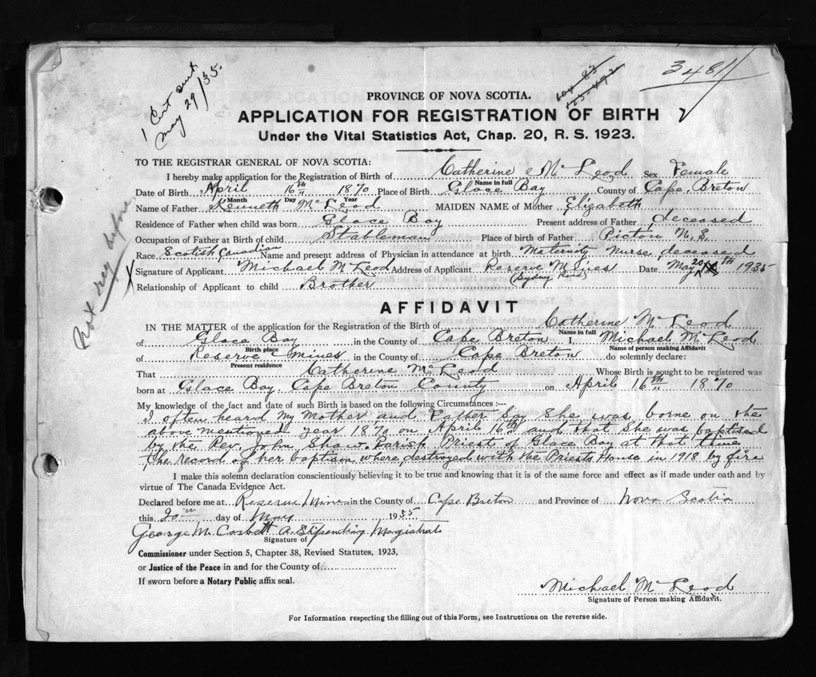 1 Cert sent
May 29/35.
3481
PROVINCE OF NOVA SCOTIA.
APPLICATION FOR REGISTRATION OF BIRTH
Under the Vital Statistics Act, Chap. 20, R. S. 1923.
TO THE REGISTRAR GENERAL OF NOVA SCOTIA:
I hereby make application for the Registration of Birth of Catherine McLeod Sex Female
Name in full
Date of Birth April 16th 1870 Place of Birth Glace Bay County of Cape Breton
Month Day Year
Name of Father Kenneth McLeod MAIDEN NAME of Mother Elizabeth
Residence of Father when child was born Glace Bay Present address of Father deceased
Occupation of Father at Birth of child Stableman Place of birth of Father Pictou N.S.
Race Scotish Canadian Name and present address of Physician in attendance at birth Maternity Nurse deceased
Signature of Applicant Michael McLeod Address of Applicant Reserve Mines Date May 20th 1935
(Sydney Road)
Relationship of Applicant to child Brother
Not reg before
AFFIDAVIT
IN THE MATTER of the application for the Registration of the Birth of Catherine McLeod
Name in full
of Glace Bay in the County of Cape Breton I, Michael McLeod
Birth place Name of person making Affidavit
of Reserve Mines in the County of Cape Breton do solemnly declare:
Present residence
That Catherine McLeod Whose Birth is sought to be registered was
born at Glace Bay Cape Breton County on April 16th 1870
My knowledge of the fact and date of such Birth is based on the following Circumstances :—
I often heard My Mother and Father Say She was borne on the
above mentioned year 1870 on April 16th and that She was baptised
by the Rev. John Shaw. Parish Priest of Glace Bay at that time
The record of her baptism where destroyed with the Priests House in 1918 by fire
I make this solemn declaration conscientiously believing it to be true and knowing that it is of the same force and effect as if made under oath and by
virtue of The Canada Evidence Act.
Declared before me at Reserve Mines in the County of Cape Breton and Province of Nova Scotia
this 20th day of May 1935
George M. Corbett A Stipendiary Magistrate
Signature of
Commissioner under Section 5, Chapter 38, Revised Statutes, 1923,
or Justice of the Peace in and for the County of
If sworn before a Notary Public affix seal.
Michael McLeod
Signature of Person making Affidavit.
For Information respecting the filling out of this Form, see Instructions on the reverse side.